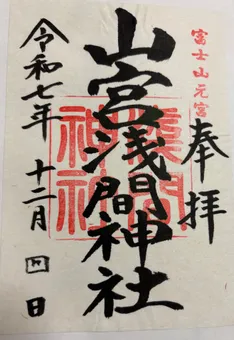 富士山元宮
奉拝
山宮浅間神社
令和七年 十二月 四日